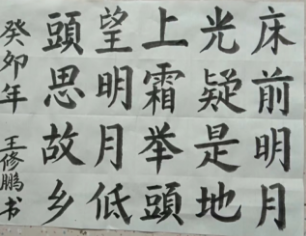 床前明月
光疑是地
上霜举頭
望明月低
頭思故乡
癸卯年 王修鹏书